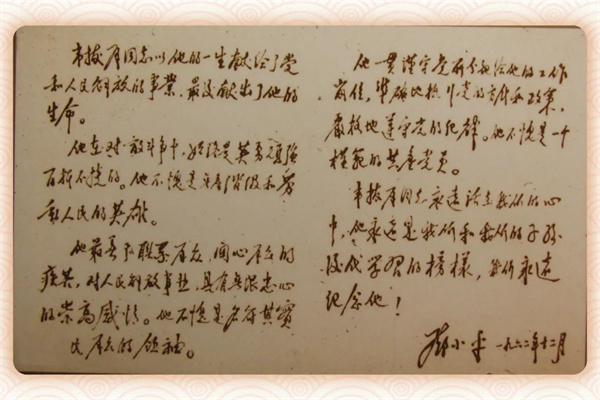 韦拔群同志以他的一生献给了党
和人民解放的事業，最后献出了他的
生命。
他在对敌斗争中，始终是英勇顽强
百折不挠的。他不愧是无产阶级和劳
动人民的英雄。
他最善于联系群众，関心群众的
疾苦，对人民解放事业，具有无限忠心
的崇高感情。他不愧是名符其实
的群众的领袖。
他一贯谨守党所分配给他的工作
岗位，準确地执行党的方针和政策，
严格地遵守党的纪律。他不愧是一个
模範的共產党员。
韦拔群同志永远活在我们的心
中，他永远是我们和我们的子孙
后代学习的榜樣，我们永远
纪念他！
邓小平 一九六二年十二月